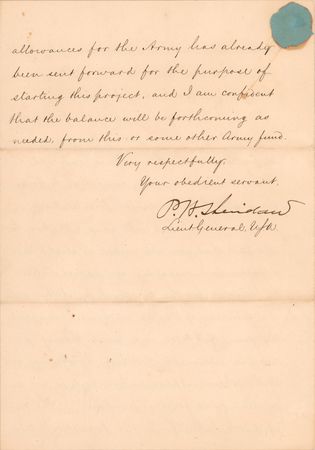 allowances for the Army has already
been sent forward for the purpose of
starting this project, and I am confident
that the balance will be forthcoming as
needed, from this or some other Army fund.
Very respectfully,
Your obedient servant,
P. H. Sheridan
Lieut General, U.S.A.